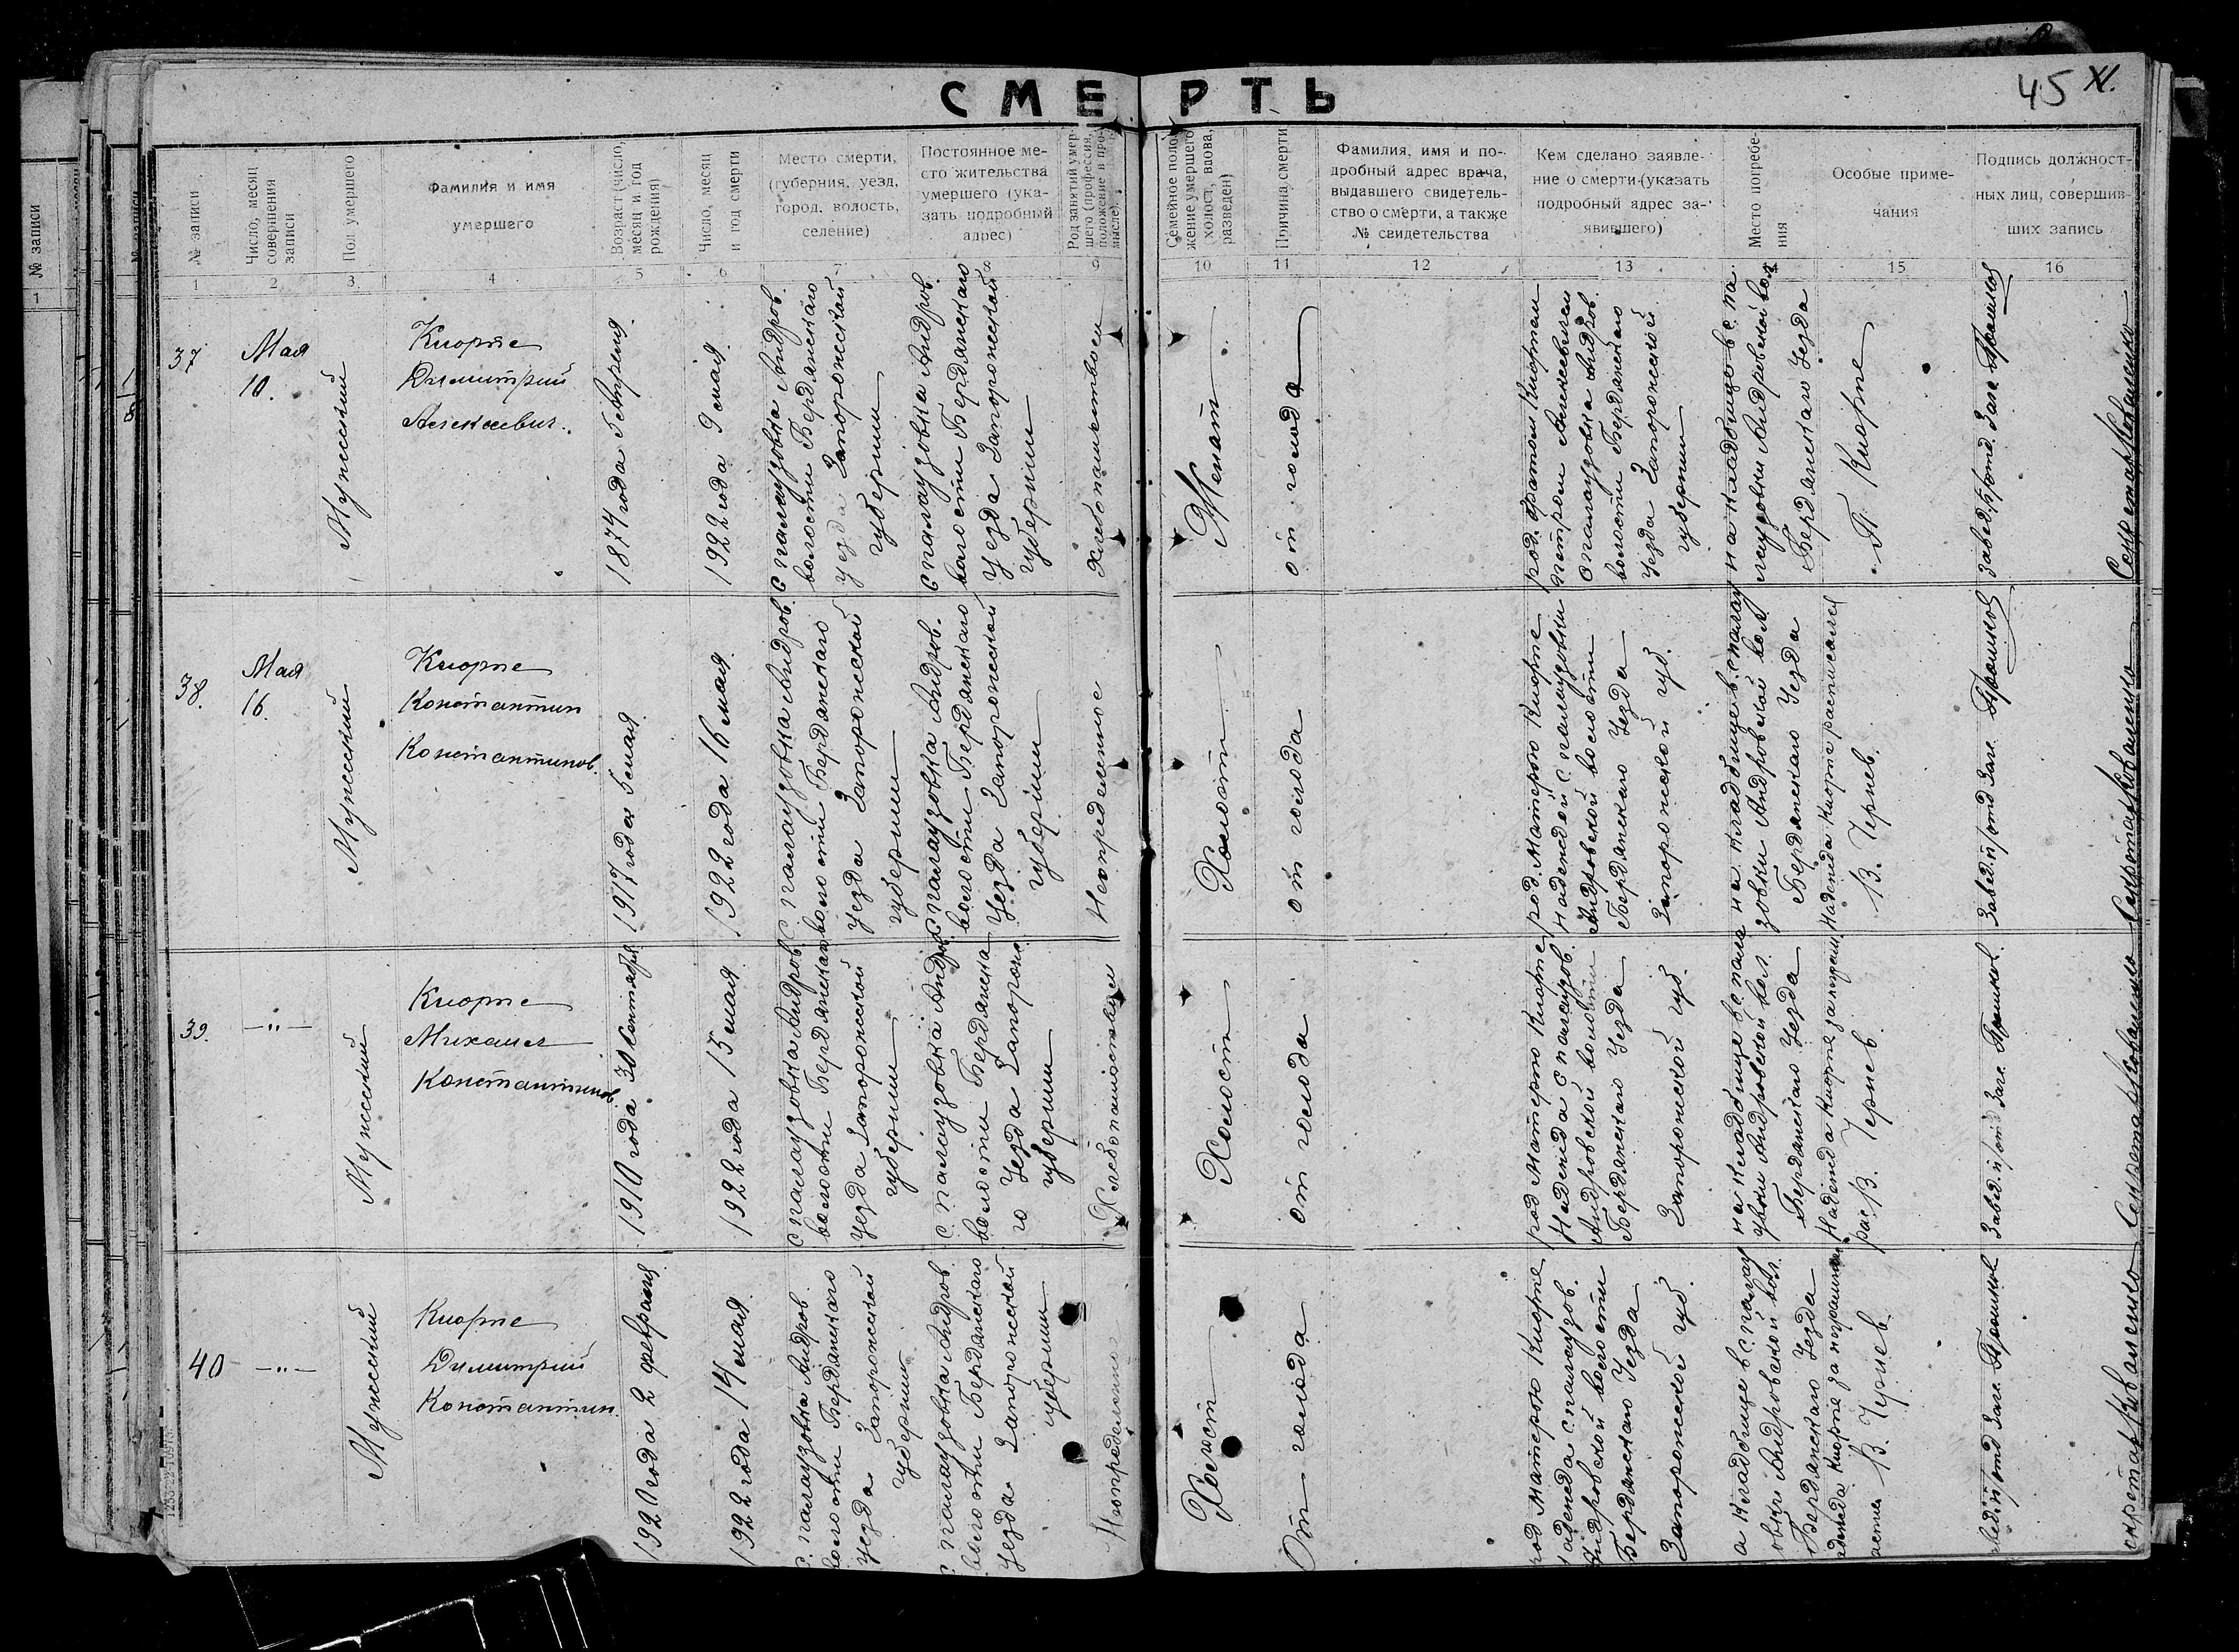 СМЕРТЬ
45
№ записи
1
№ записи
Число, месяц
совершения
записи
Пол умершего
Фамилия и имя
умершего
Возраст (число,
месяц и год
рождения)
Число, месяц
и год смерти
Место смерти,
(губерния, уезд,
город, волость,
селение)
Постоянное ме-
сто жительства
умершего (ука-
зать подробный
адрес)
Род занятий умер-
шего (профессия,
положение в про-
мысле).
Семейное поло-
жение умершего
(холост, вдова,
разведен)
Причина смерти
Фамилия, имя и по-
дробный адрес врача,
выдавшего свидетель-
ство о смерти, а также
№ свидетельства
Кем сделано заявле-
ние о смерти (указать
подробный адрес за-
явившего)
Место погребе-
ния
Особые приме-
чания
Подпись должност-
ных лиц, совершив-
ших запись
1 2 3 4 5 6 8 9 10 11 12 13 15 16
37
Мая
10.
Мужеский
Киорпе
Димитрий
Алексеевич.
1874 года 5 Апреля.
1922 года 9 мая.
с палаузовка Андров.
волости Бердянскаго
уезда Запорожской
губернии
с палаузовка Андров.
волости Бердянскаго
уезда Запорожской
губернии
Хлебопашеством
Женат
от голода
род. братом Киорпем
Петром Алексеевичем
с палаузовка Андров.
волости Бердянскаго
уезда Запорожской
губернии
на кладбище в с. па
лаузовки Андровской вол
Бердянскаго Уезда
П. Киорпе
завед. п/отд. Загс
Секретарь Коваленко
38.
Мая
16.
Мужеский
Киорпе
Константин
Константинов.
1917 года 5 мая.
1922 года 16 мая.
с палаузовка Андров.
волости Бердянскаго
уезда Запорожской
губернии
с палаузовка Андров.
волости Бердянскаго
Уезда Запорожской
губернии
Неопределенное
Холост
от голода
род. Матерью Киорпе
Надеждой с палаузовки
Андровской волости
Бердянскаго Уезда
Запорожской губ.
на кладбище в с. палау
зовки Андровской вол.
Бердянскаго Уезда
Надежда Киорпе
В. Чернев.
Завед. п/отд Загс
Секретарь Коваленко
39.
—"—
Мужеский
Киорпе
Михаил
Константинов.
1910 года 30 Сентября
1922 года 15 мая.
с палаузовка Андров.
волости Бердянскаго
уезда Запорожской
губернии
с палаузовка Андров.
волости Бердянска
го Уезда Запорож.
губернии
Хлебопашеством
Холост
от голода
род Матерью Киорпе
Надежда с палаузов.
Андровской волости
Бердянскаго Уезда
Запорожской губ.
на кладбище в с. палаз
увки Андровской вол.
Бердянскаго Уезда
Надежда Киорпе за неграм.
рас. В. Чернев
Завед. п/отд Загс.
Секретарь Коваленко
40
—"—
Мужеский
Киорпе
Димитрий
Константин.
1920 года 2 февраля.
1922 года 14 мая.
с. палаузовка Андров.
волости Бердянскаго
уезда Запорожской
губернии
с палаузовка Андров.
волости Бердянскаго
уезда Запорожской
губернии
Неопределенно
Холост
От голода
род Матерью Киорпе
Надежда с палаузов.
Андровской волости
Бердянскаго Уезда
Запорожской губ.
а кладбище в с. палау
овки Андровской вол.
Бердянскаго Уезда
Киорпе за неграм.
В. Чернев
п/отд Загс.
екретарь Коваленко